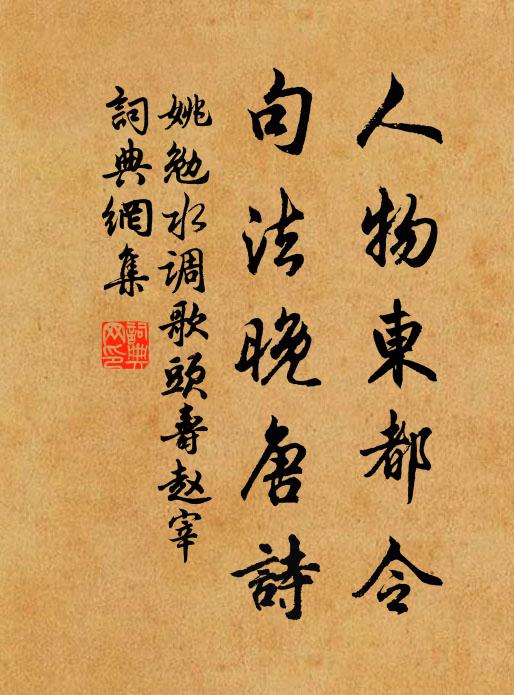 人物東都令
句法晚唐詩
姚勉水调歌頭壽赵宰
詞典網集
詞典网印